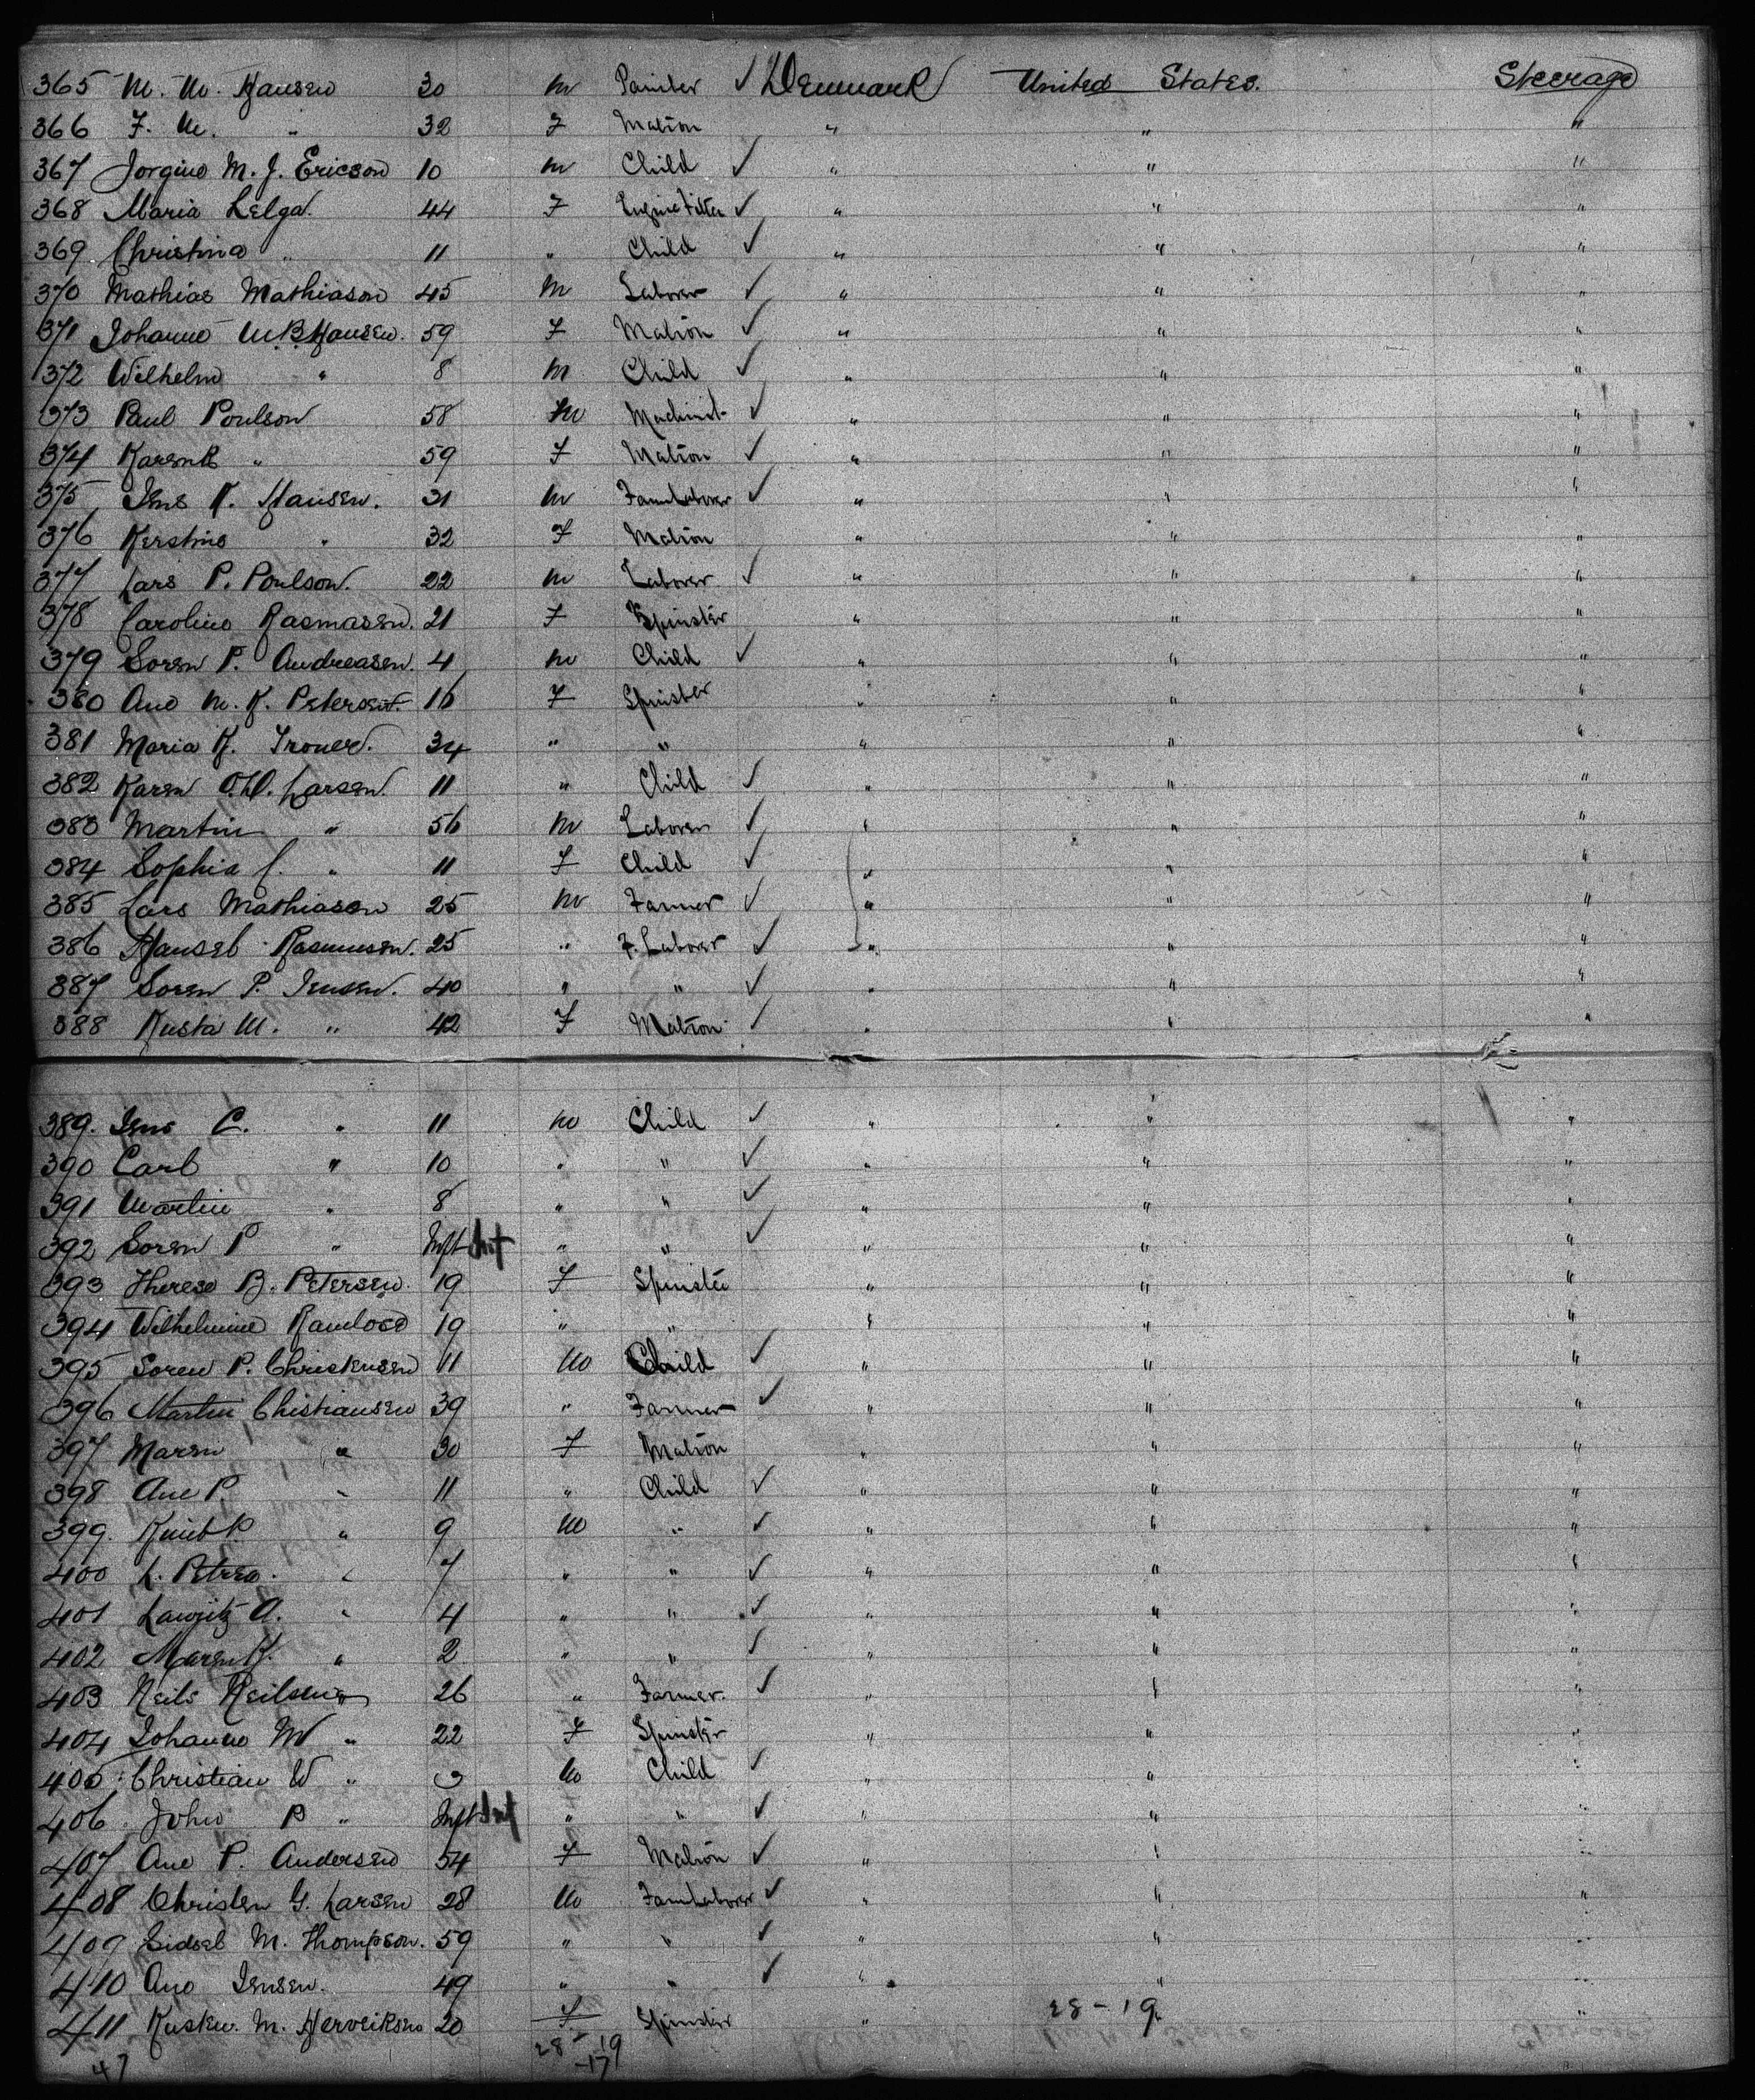 365 M. M. Hansen 30 m Painter ✓ Denmark United States. Steerage
366 F. M. " 32 F Matron " " "
367 Jorgine M. J. Ericson 10 m Child ✓ " " "
368 Maria Helga. 44 F Engine Fitter ✓ " " "
369 Christina " 11 " Child ✓ " " "
370 Mathias Mathiason 45 M Laborer ✓ " " "
371 Johanne M. B. Hansen. 59 F Matron ✓ " " "
372 Wilhelm " 8 M Child ✓ " " "
373 Paul Poulson 58 m Machinist ✓ " " "
374 Karen K " 59 F Matron ✓ " " "
375 Jens K. Hansen. 31 m Farm Laborer ✓ " " "
376 Kerstine " 32 F Matron " " "
377 Lars P. Poulson. 22 m Laborer ✓ " " "
378 Caroline Rasmasen. 21 F Spinster " " "
379 Soren P. Andreasen. 4 m Child ✓ " " "
380 Ane M. K. Petersen. 16 F Spinster " " "
381 Maria K. 34 " " " " "
382 Karen Larsen. 11 " Child ✓ " " "
383 Martin " 56 m Laborer ✓ " " "
384 Sophia C. " 11 F Child ✓ " " "
385 Lars Mathiasen 25 m Farmer ✓ " " "
386 Rasmusen. 25 " F. Laborer ✓ " " "
387 Soren P. Jensen. 40 " " ✓ " " "
388 M. " 42 F Matron ✓ " " "
389. Jens C. " 11 m Child ✓ " " "
390 Carl " 10 " " ✓ " " "
391 Martin " 8 " " ✓ " " "
392 Soren P " Inft Inf " " ✓ " " "
393 Therese B. Petersen. 19 F Spinster " " "
394 Wilhelmine 19 " " " " "
395 Soren P. Christensen 11 M Child ✓ " " "
396 Martin Christiansen 39 " Farmer ✓ " " "
397 Maren " 30 F Matron " " "
398 Ane P. " 11 " Child ✓ " " "
399. P. " 9 M " ✓ " " "
400 L. Petrea. " 7 " " ✓ " " "
401 Lauritz A. " 4 " " ✓ " " "
402 Maren K. " 2 " " ✓ " " "
403 Neils Neilsen 26 " Farmer. ✓ " " "
404 Johanne M " 22 F Spinster " " "
405 Christian W " 3 M Child ✓ " " "
406. John P " Inft Inf " " ✓ " " "
407 Ane P. Andersen 54 F Matron ✓ " " "
408 Christen G. Larsen 28 M Farm Laborer ✓ " " "
409 Sidsel M. Thompson. 59 " " ✓ " " "
410 Ane Jensen. 49 " " ✓ " " "
411 M. 20 F Spinster " 28 - 19 "
47 28 - 19
-17